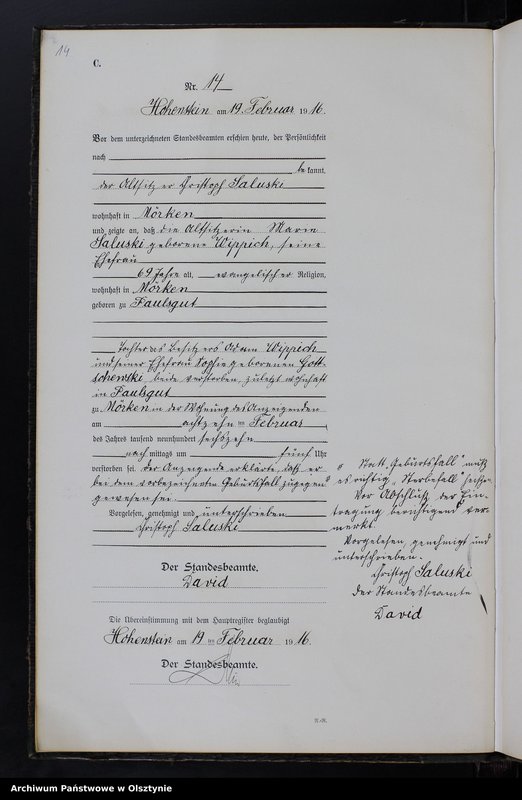 14
C.
Nr. 14
Hohenstein am 19. Februar 1916.
Vor dem unterzeichneten Standesbeamten erschien heute, der Persönlichkeit
nach
bekannt,
der Altsitzer Christoph Saluski
wohnhaft in Mörken
und zeigte an, daß die Altsitzerin Marie
Saluski geborene Wippich, seine
Ehefrau
69 Jahre alt, evangelischer Religion,
wohnhaft in Mörken
geboren zu Faulsgut
Tochter des Besitzers Adam Wippich
und seiner Ehefrau Sophie geborenen Gott-
schewski, beide verstorben, zuletzt wohnhaft
in Faulsgut
zu Mörken in der Wohnung des Anzeigenden
am achtzehnten Februar
des Jahres tausend neunhundert sechszehn
nachmittags um fünf Uhr
verstorben sei. Der Anzeigende erklärte, daß er
bei dem vorbezeichneten Geburtsfall zugegen
gewesen sei.
Vorgelesen, genehmigt und unterschrieben
Christoph Saluski
Der Standesbeamte.
David
Die Übereinstimmung mit dem Hauptregister beglaubigt
Hohenstein am 19 ten Februar 1916.
Der Standesbeamte.
Statt „Geburtsfall" muß
es richtig „Sterbefall" heißen.
Vor Abschluß der Ein-
tragung berichtigend ver-
merkt.
Vorgelesen, genehmigt und
unterschrieben.
Christoph Saluski
Der Standesbeamte
David
Archiwum Państwowe w Olsztynie